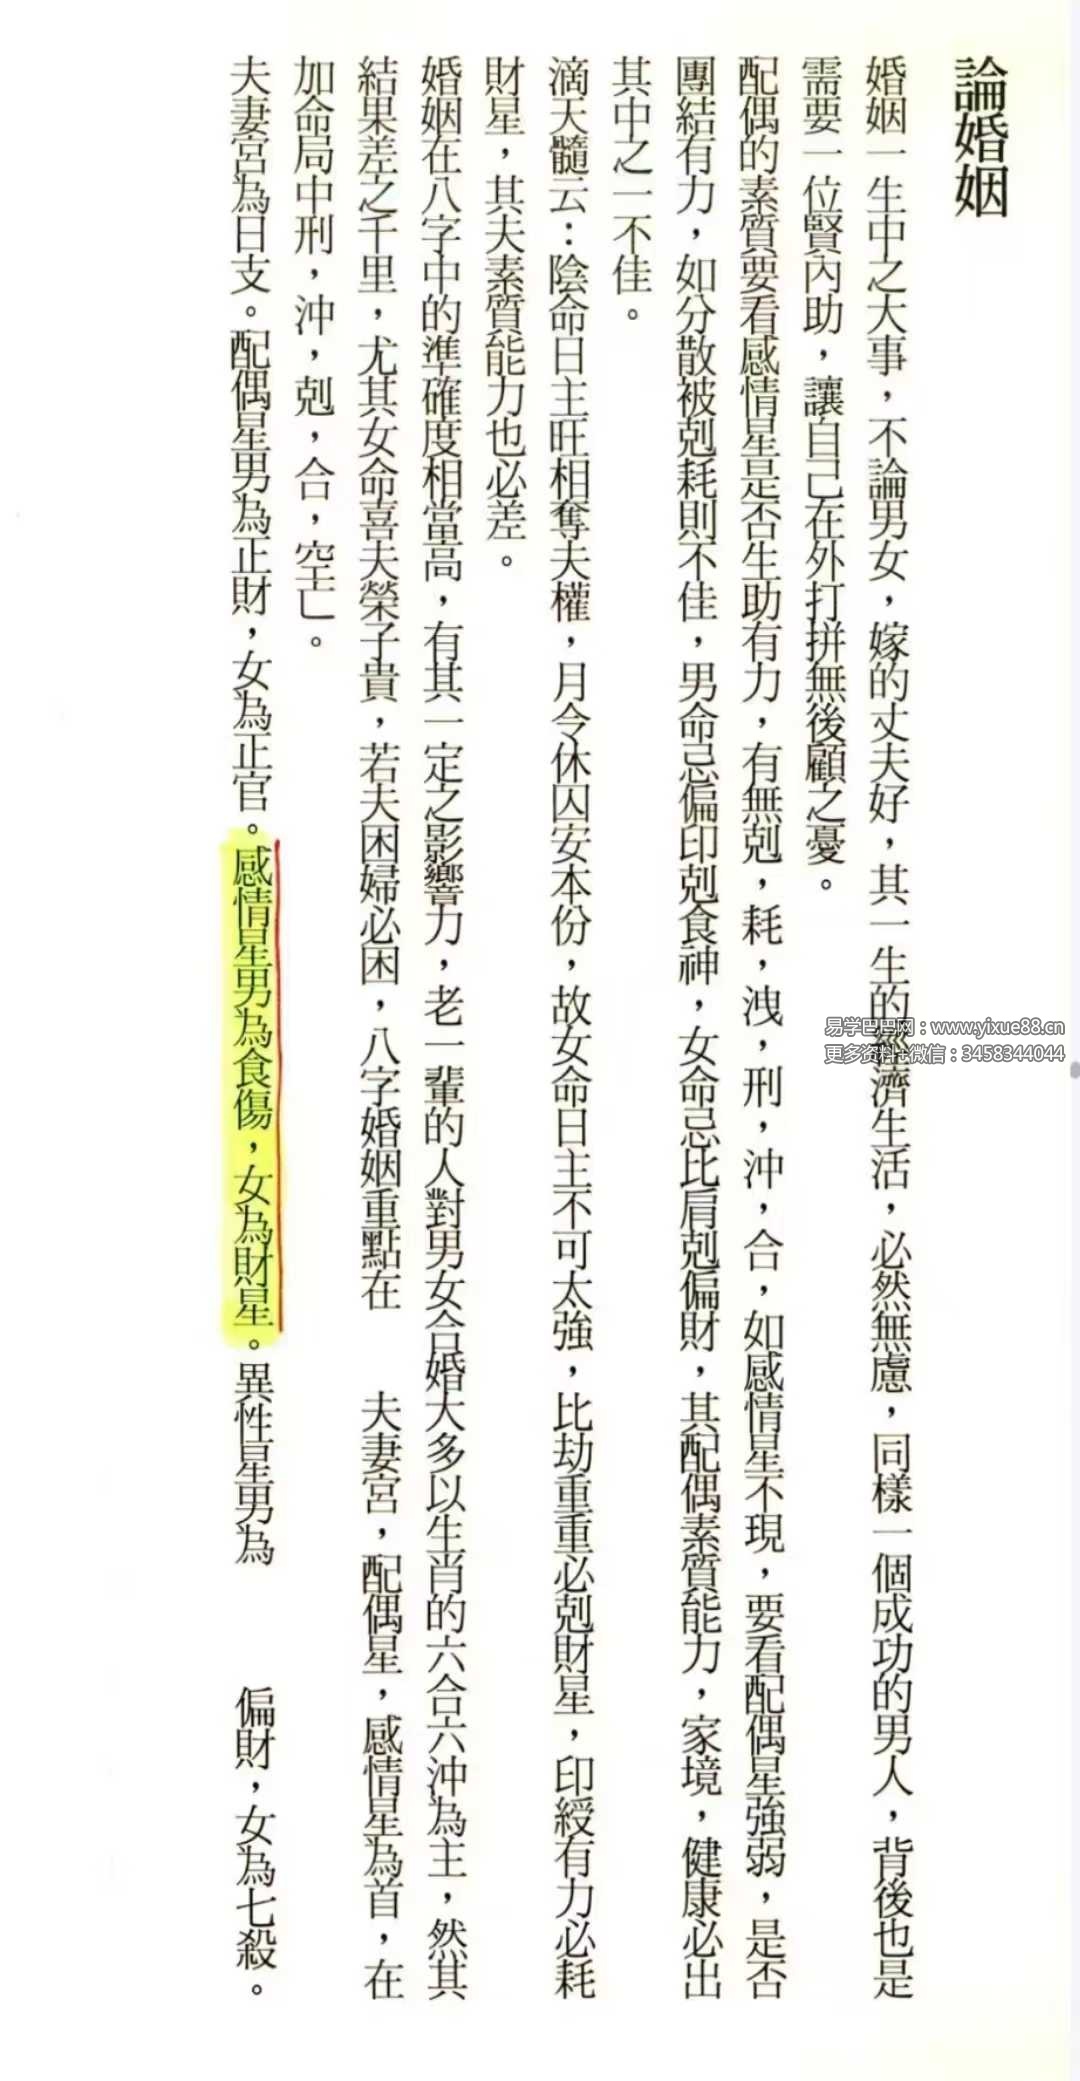 論婚姻
婚姻一生中之大事，不論男女，嫁的丈夫好，其一生的經濟生活，必然無慮，同樣一個成功的男人，背後也是
需要一位賢內助，讓自己在外打拼無後顧之憂。
配偶的素質要看感情星是否生助有力，有無剋，耗，洩，刑，沖，合，如感情星不現，要看配偶星強弱，是否
團結有力，如分散被剋耗則不佳，男命忌偏印剋食神，女命忌比肩剋偏財，其配偶素質能力，家境，健康必出
其中之一不佳。
滴天髓云：陰命日主旺相奪夫權，月令休囚安本份，故女命日主不可太強，比劫重重必剋財星，印綬有力必耗
財星，其夫素質能力也必差。
婚姻在八字中的準確度相當高，有其一定之影響力，老一輩的人對男女合婚大多以生肖的六合六沖為主，然其
結果差之千里，尤其女命喜夫榮子貴，若夫困婦必困，八字婚姻重點在 夫妻宮，配偶星，感情星為首，在
加命局中刑，沖，剋，合，空亡。
夫妻宮為日支。配偶星男為正財，女為正官。感情星男為食傷，女為財星。異性星男為 偏財，女為七殺。
易学巴巴网：www.yixue88.cn
更多资料+微信：3458344044